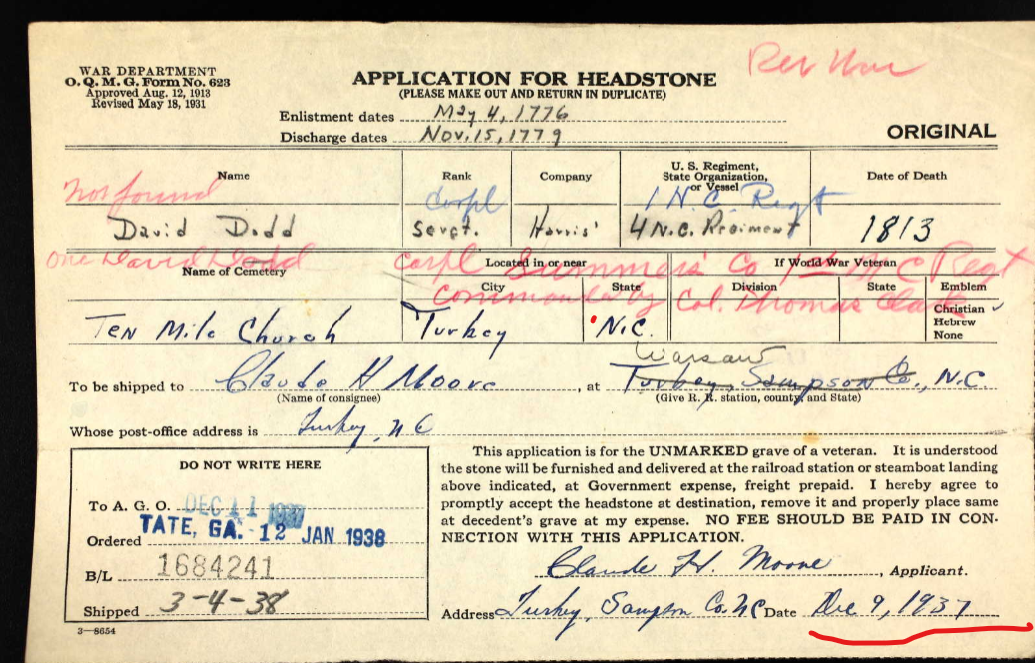 WAR DEPARTMENT
O. Q. M. G. Form No. 623
Approved Aug. 12, 1913
Revised May 18, 1931
APPLICATION FOR HEADSTONE
(PLEASE MAKE OUT AND RETURN IN DUPLICATE)
Rev War
Enlistment dates May 4, 1776
Discharge dates Nov. 15, 1779
ORIGINAL
Name Rank Company U. S. Regiment, State Organization, or Vessel Date of Death
Not found Corpl 1 N.C. Regt
David Dodd Sergt. Harris' 4 N.C. Regiment 1813
One David Dodd Corpl Summers' Co 1st N C Regt
Name of Cemetery Located in or near If World War Veteran
City State Division State Emblem
Commanded by Col. Thomas Clark
Christian ✓
Hebrew
None
Ten Mile Church Turkey N.C.
Warsaw
To be shipped to Claude H Moore, at Turkey, Sampson Co., N.C.
(Name of consignee) (Give R. R. station, county, and State)
Whose post-office address is Turkey, NC
DO NOT WRITE HERE
To A. G. O. DEC 11 1937
Ordered TATE, GA. 12 JAN 1938
B/L 1684241
Shipped 3-4-38
3—8654
This application is for the UNMARKED grave of a veteran. It is understood
the stone will be furnished and delivered at the railroad station or steamboat landing
above indicated, at Government expense, freight prepaid. I hereby agree to
promptly accept the headstone at destination, remove it and properly place same
at decedent's grave at my expense. NO FEE SHOULD BE PAID IN CON-
NECTION WITH THIS APPLICATION.
Claude H. Moore, Applicant.
Address Turkey, Sampson Co. NC Date Dec 9, 1937